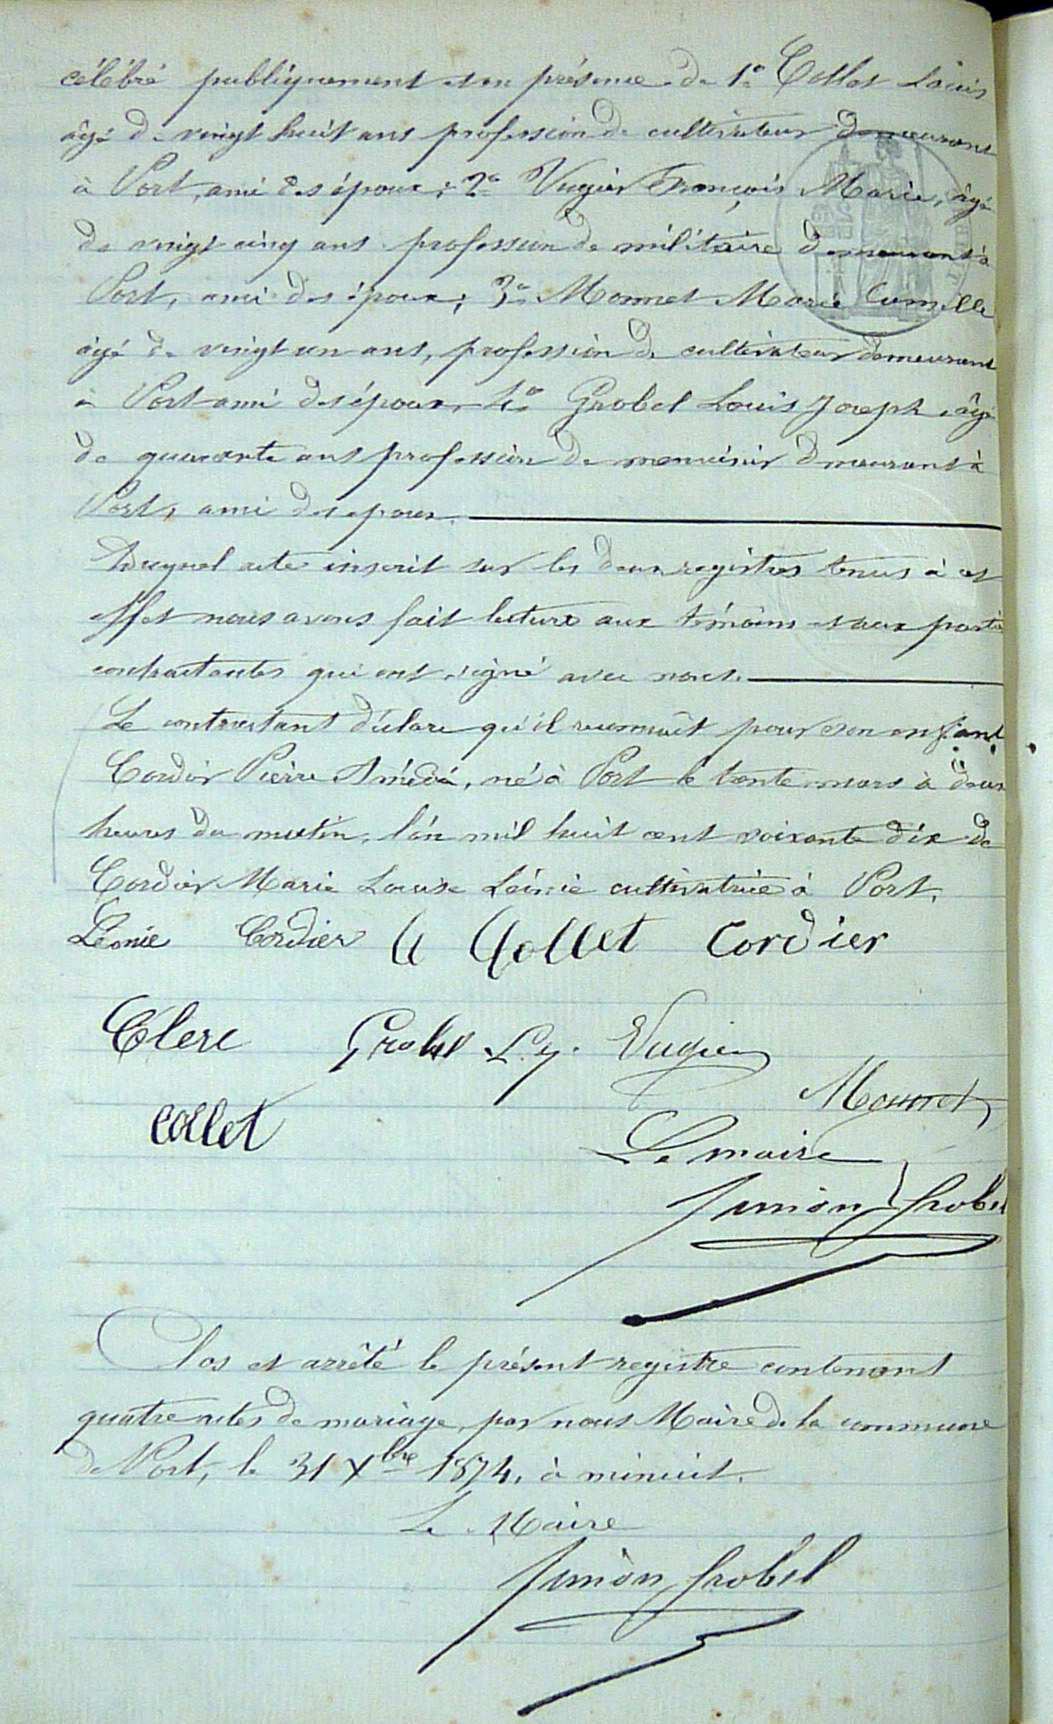 célébré publiquement et en présence de 1° Collet Louis
âgé de vingt huit ans profession de cultivateur demeurant
à Port, ami des époux; 2° Vugier François Marie, âgé
de vingt cinq ans profession de militaire demeurant à
Port, ami des époux; 3° Monnet Marie Camille
âgé de vingt un ans, profession de cultivateur demeurant
à Port ami des époux, 4° Grobel Louis Joseph, âgé
de quarante ans profession de menuisier demeurant à
Port, ami des époux.
Duquel acte inscrit sur les deux registres tenus à cet
effet nous avons fait lecture aux témoins et aux parties
contractantes qui ont signé avec nous.
Le contractant déclare qu'il reconnaît pour son enfant
Cordier Pierre Amédé, né à Port le trente mars à deux
heures du matin, l'an mil huit cent soixante dix de
Cordier Marie Louise Léonie cultivatrice à Port.
Léonie Cordier Collet Cordier
Clerc Grobel L. J. Vugier
Monnet
Collet
Le maire
Simèon Grobel
Clos et arrêté le présent registre contenant
quatre actes de mariage, par nous Maire de la commune
de Port, le 31 Xbre 1874, à minuit.
Le Maire
Simèon Grobel